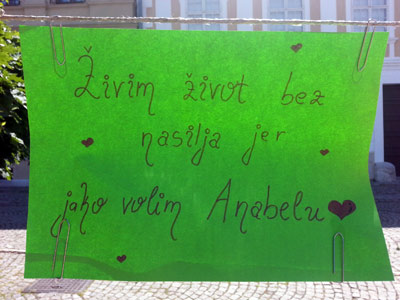 Živim život bez
nasilja jer
jako volim Anabelu